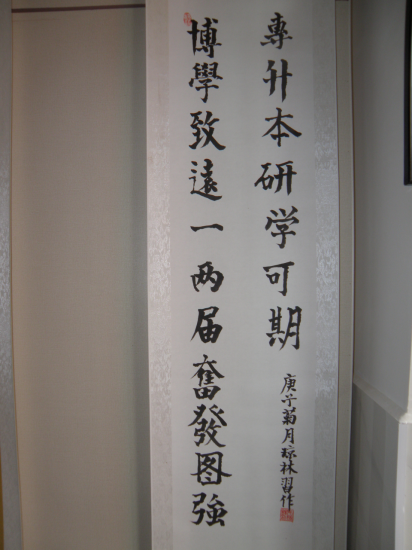 博學致遠一两届奮發图強
專升本研学可期
庚子菊月琼林習作